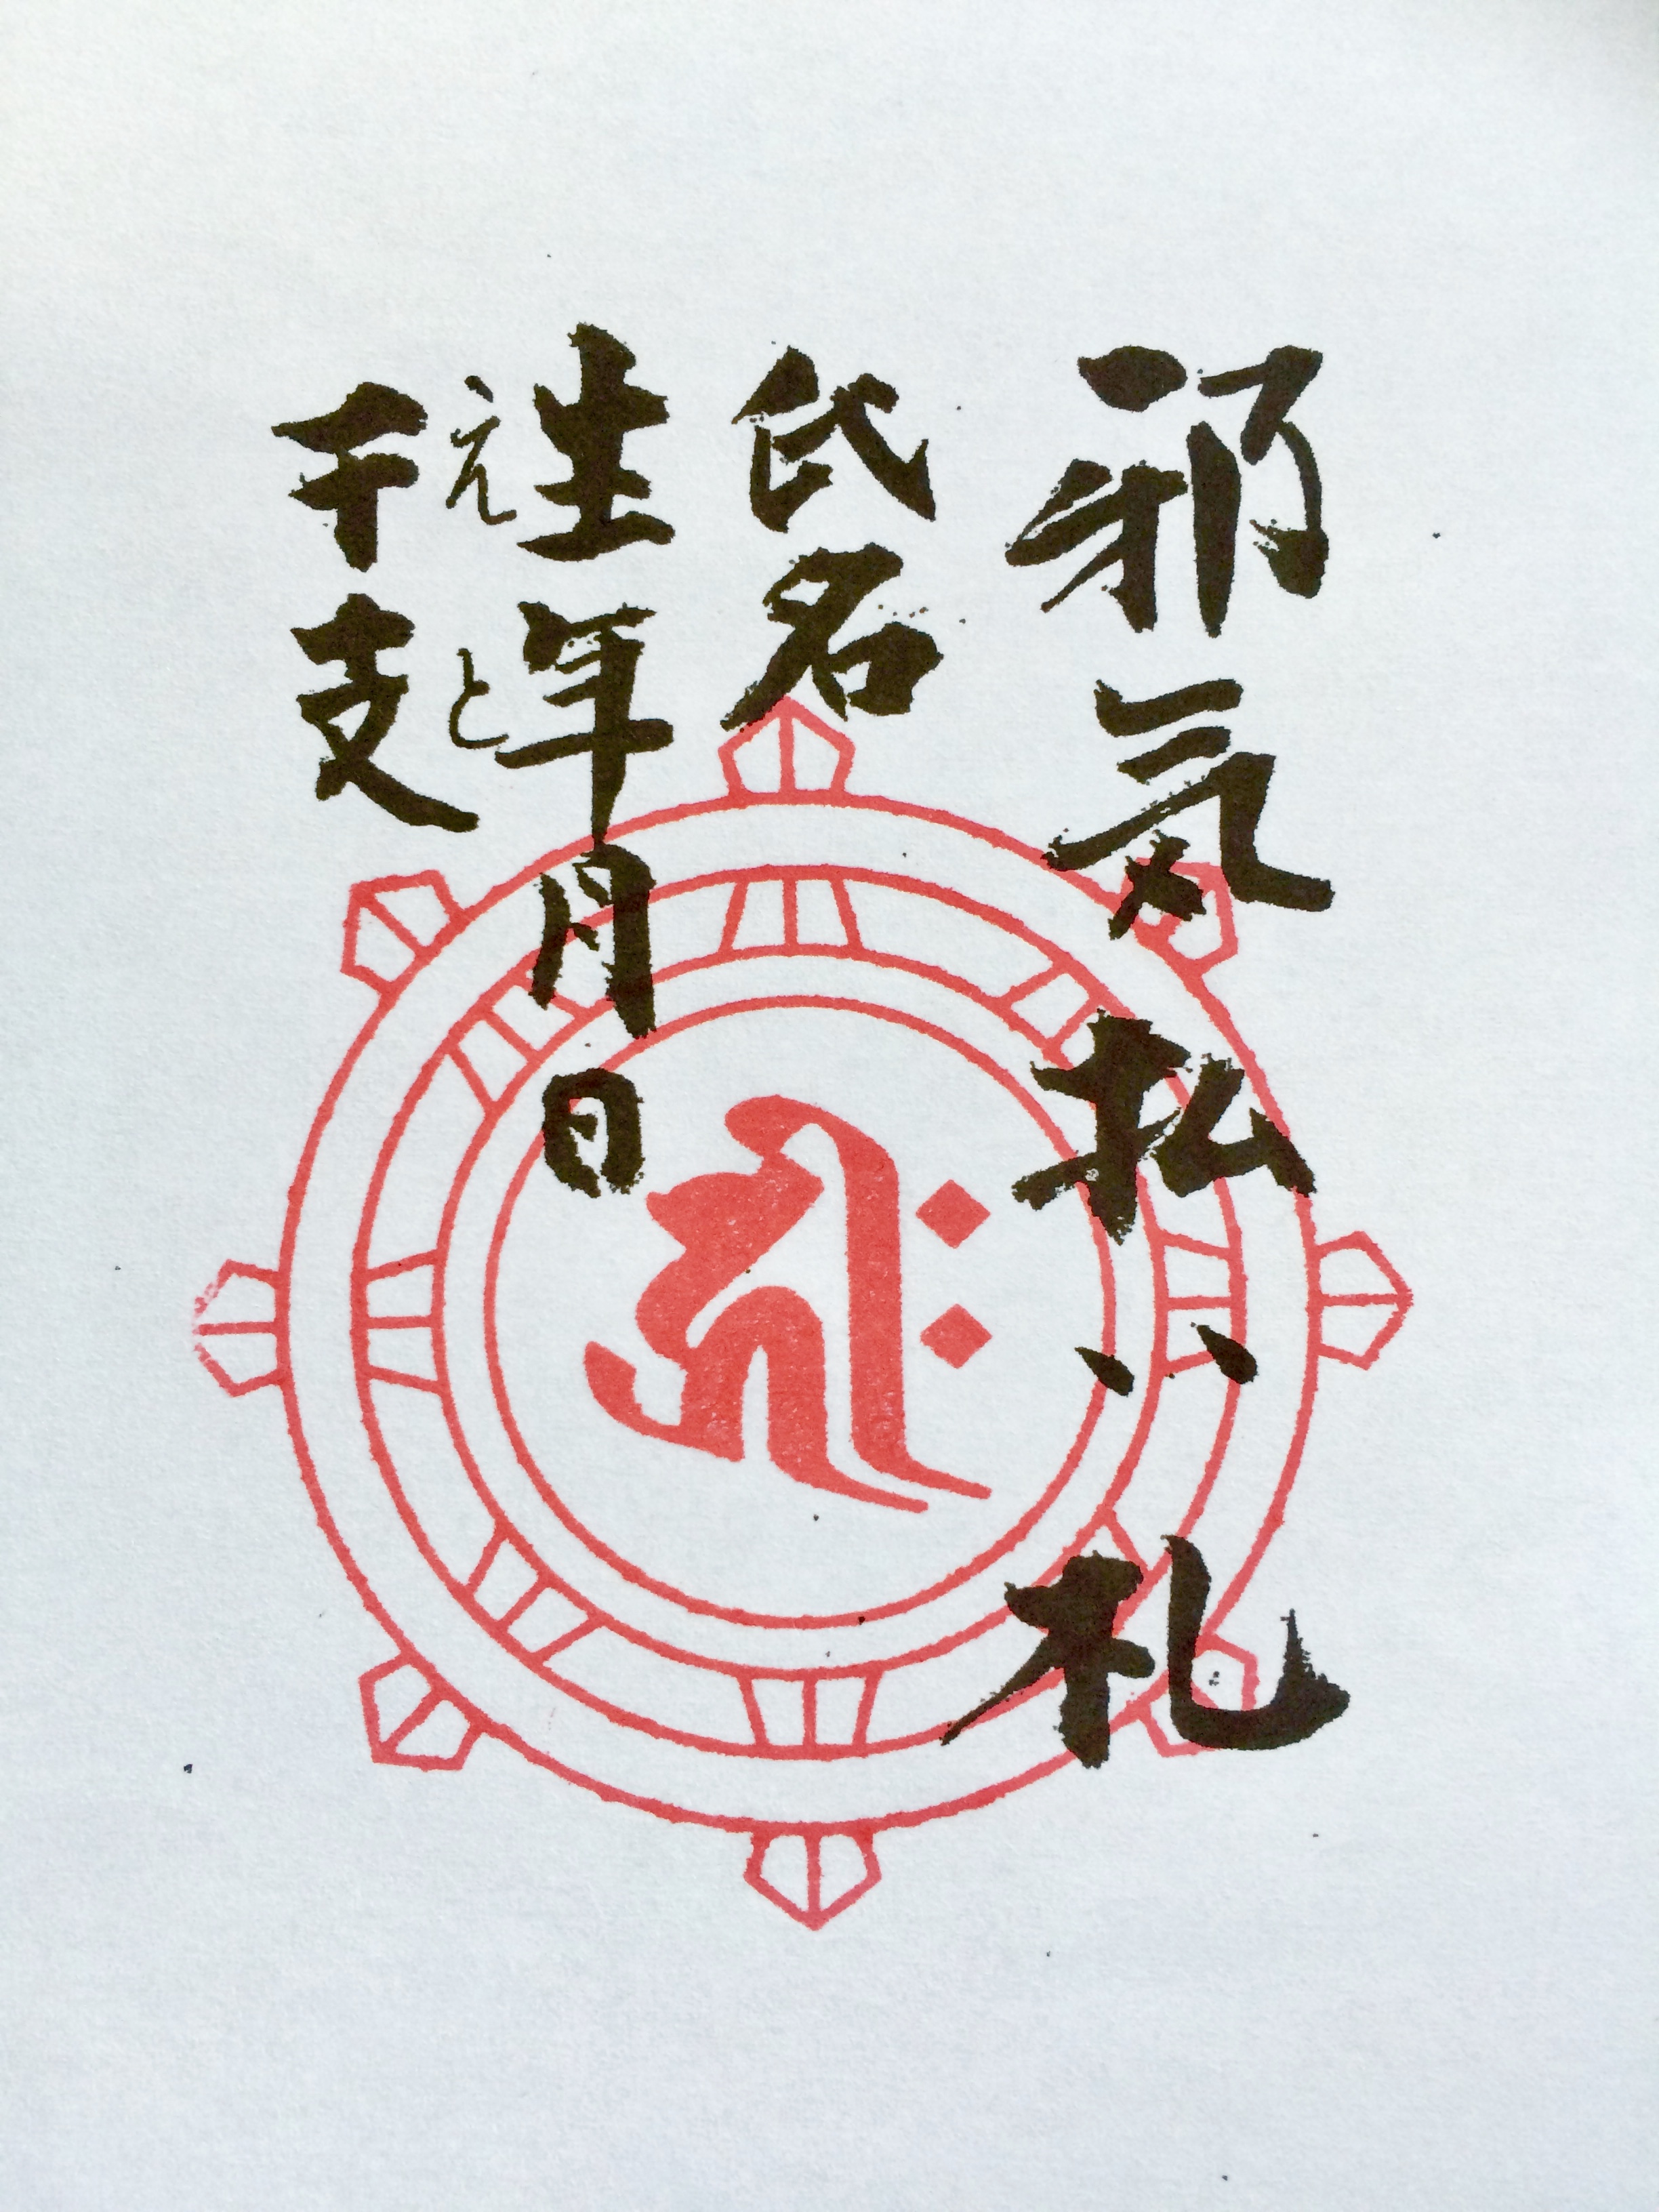 邪気払い札
氏名
生年月日
えと
干支
𑖮𑖿𑖨𑖱𑖾